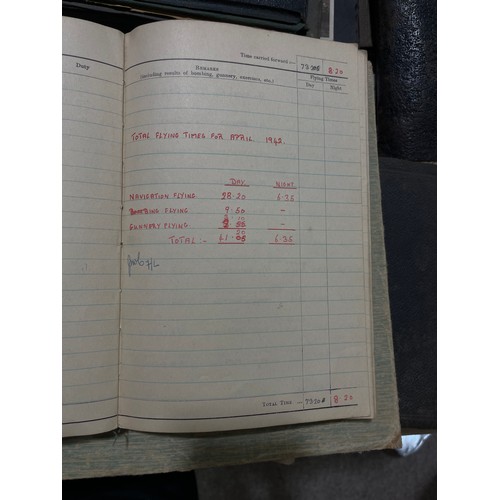 Duty
Time carried forward :—
8 20
REMARKS
(including results of bombing, gunnery, exercises, etc.)
Flying Times
Day Night
TOTAL FLYING TIMES FOR APRIL. 1943.
DAY. NIGHT.
NAVIGATION FLYING 28·20 6·35
BOMBING FLYING 9·50 –
GUNNERY FLYING –
TOTAL :- 6·35
TOTAL TIME. —
8 20